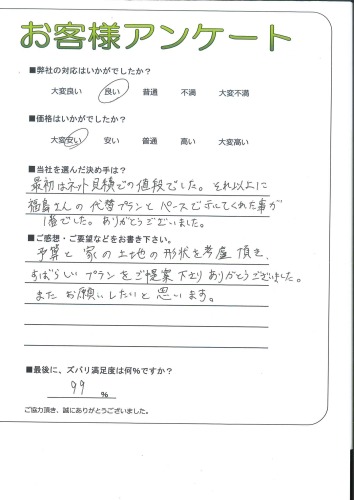 お客様アンケート
■弊社の対応はいかがでしたか？
大変良い 良い 普通 不満 大変不満
■価格はいかがでしたか？
大変安い 安い 普通 高い 大変高い
■当社を選んだ決め手は？
最初はネット見積での値段でした。それ以上に
福島さんの代替プランとペースで示してくれた事が
1番でした。ありがとうございました。
■ご感想・ご要望などをお書き下さい。
予算と家の土地の形状を考慮頂き、
すばらしいプランをご提案下さりありがとうございました。
またお願いしたいと思います。
■最後に、ズバリ満足度は何%ですか？
99 %
ご協力頂き、誠にありがとうございました。